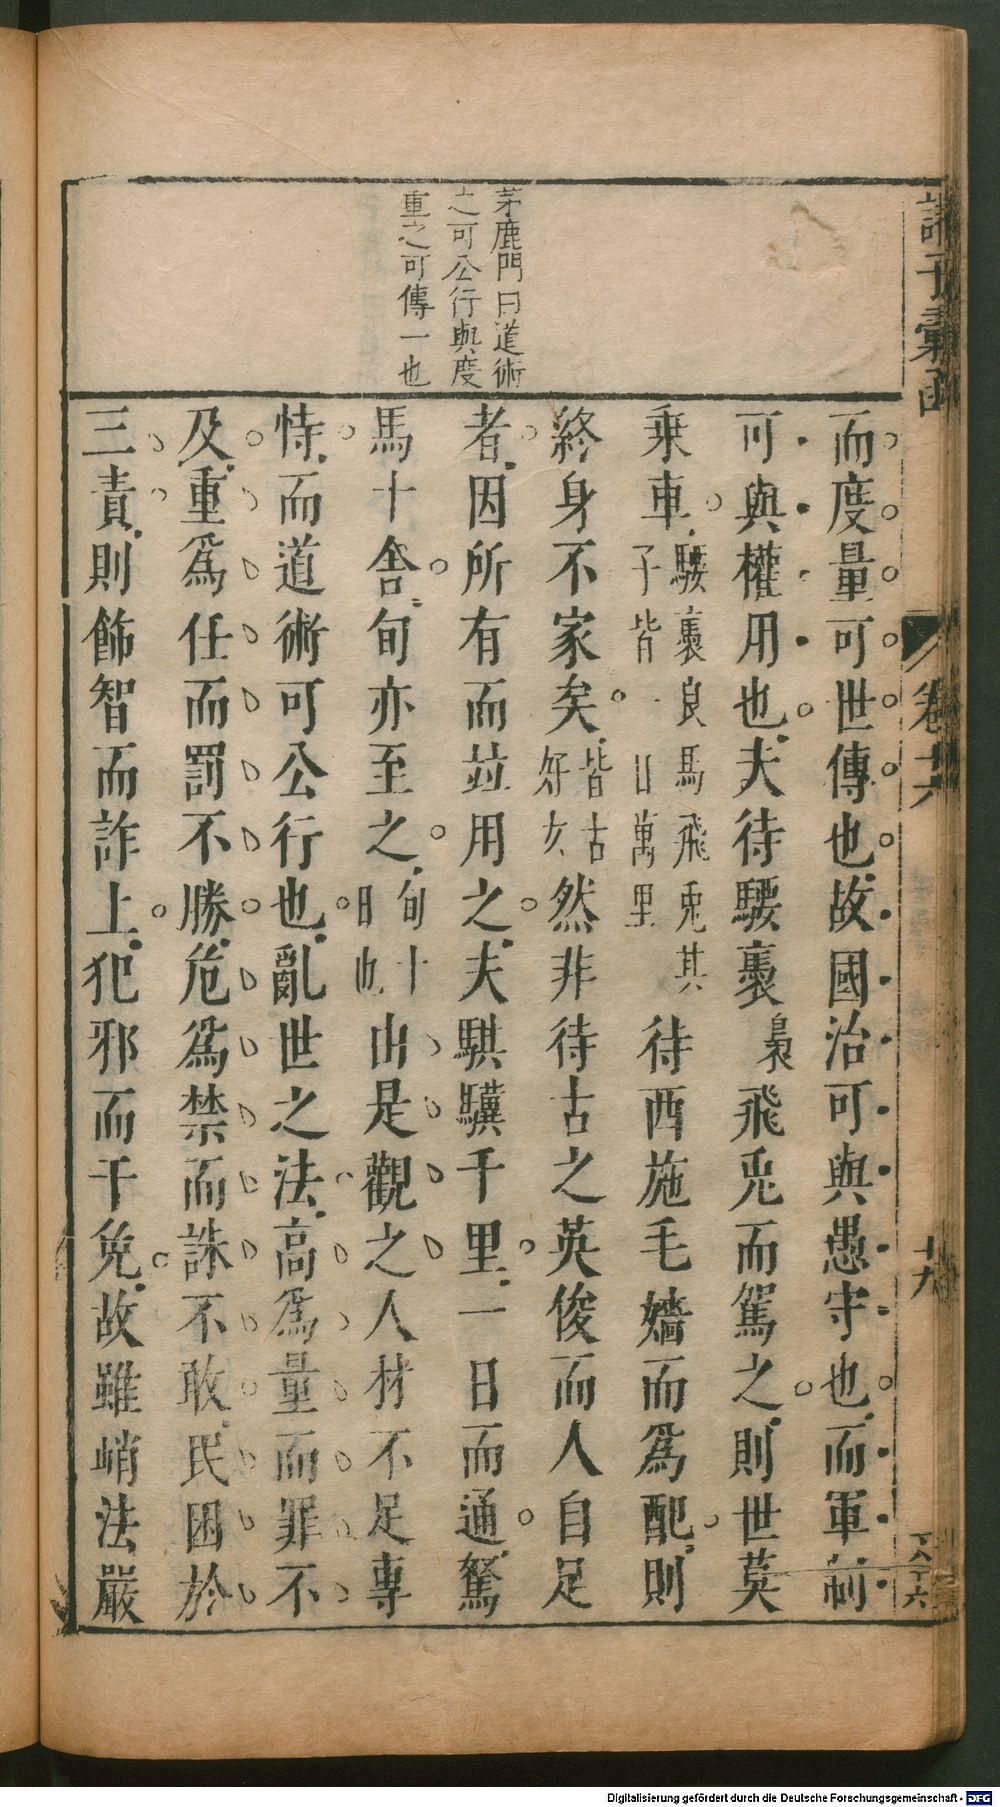 諸子彙函
卷十六
十九
茅鹿門曰道術
之可公行與度
量之可傳一也
而度量可世傳也故國治可與愚守也而軍制
可與權用也夫待騕褭梟飛兎而駕之則世莫
乗車騕褭良馬飛兎其子皆一日萬里待西施毛嬙而爲配則
終身不家矣皆古好女然非待古之英俊而人自足
者因所有而竝用之夫騏驥千里一日而通駑
馬十舍旬亦至之旬十日也由是觀之人材不足專
恃而道術可公行也亂世之法高爲量而罪不
及重爲任而罰不勝危爲禁而誅不敢民困於
三責則飾智而詐上犯邪而干免故雖峭法嚴
Digitalisierung gefördert durch die Deutsche Forschungsgemeinschaft - DFG